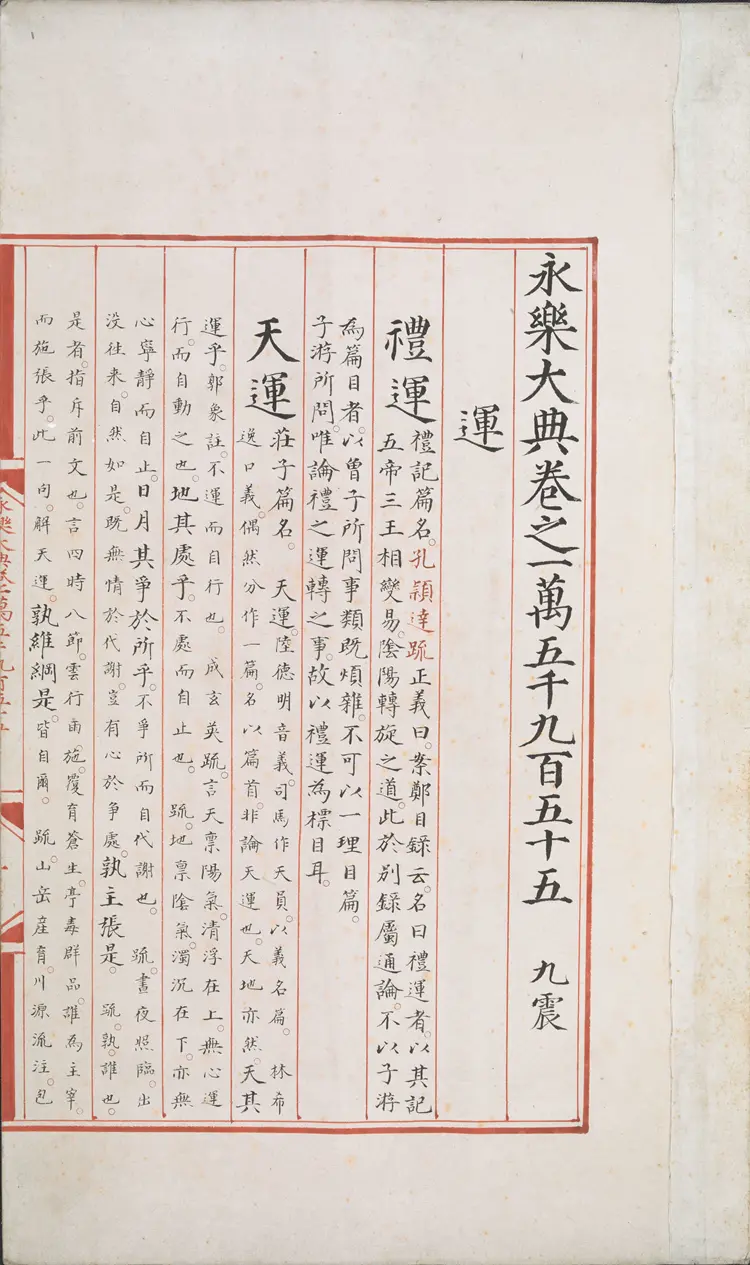 永樂大典卷之一萬五千九百五十五 九震
運
禮運
禮記篇名。孔穎達疏正義曰。案鄭目錄云。名曰禮運者。以其記
五帝三王相變易。陰陽轉旋之道。此於別錄屬通論。不以子游
為篇目者。以曾子所問事類既煩雜。不可以一理目篇。
子游所問。唯論禮之運轉之事。故以禮運為標目耳。
天運
莊子篇名。 天運。陸德明音義。司馬作天員。以義名篇。 林希
逸口義。偶然分作一篇。名以篇首。非論天運也。天地亦然。天其
運乎。郭象註。不運而自行也。 成玄英疏。言天禀陽氣。清浮在上。無心運
行。而自動之也。地其處乎。不處而自止也。 疏。地禀陰氣。濁沉在下。亦無
心寧靜而自止。日月其爭於所乎。不爭所而自代謝也。 疏。晝夜照臨。出
没往来。自然如是。既無情於代謝。豈有心於爭處。孰主張是。 疏。孰。誰也。
是者。指斥前文也。言四時八節。雲行雨施。覆育蒼生。亭毒群品。誰為主宰。
而施張乎。此一句。解天運。孰維綱是。皆自爾。 疏。山岳産育。川源流注。包
永樂大典卷一萬五千九百五十五